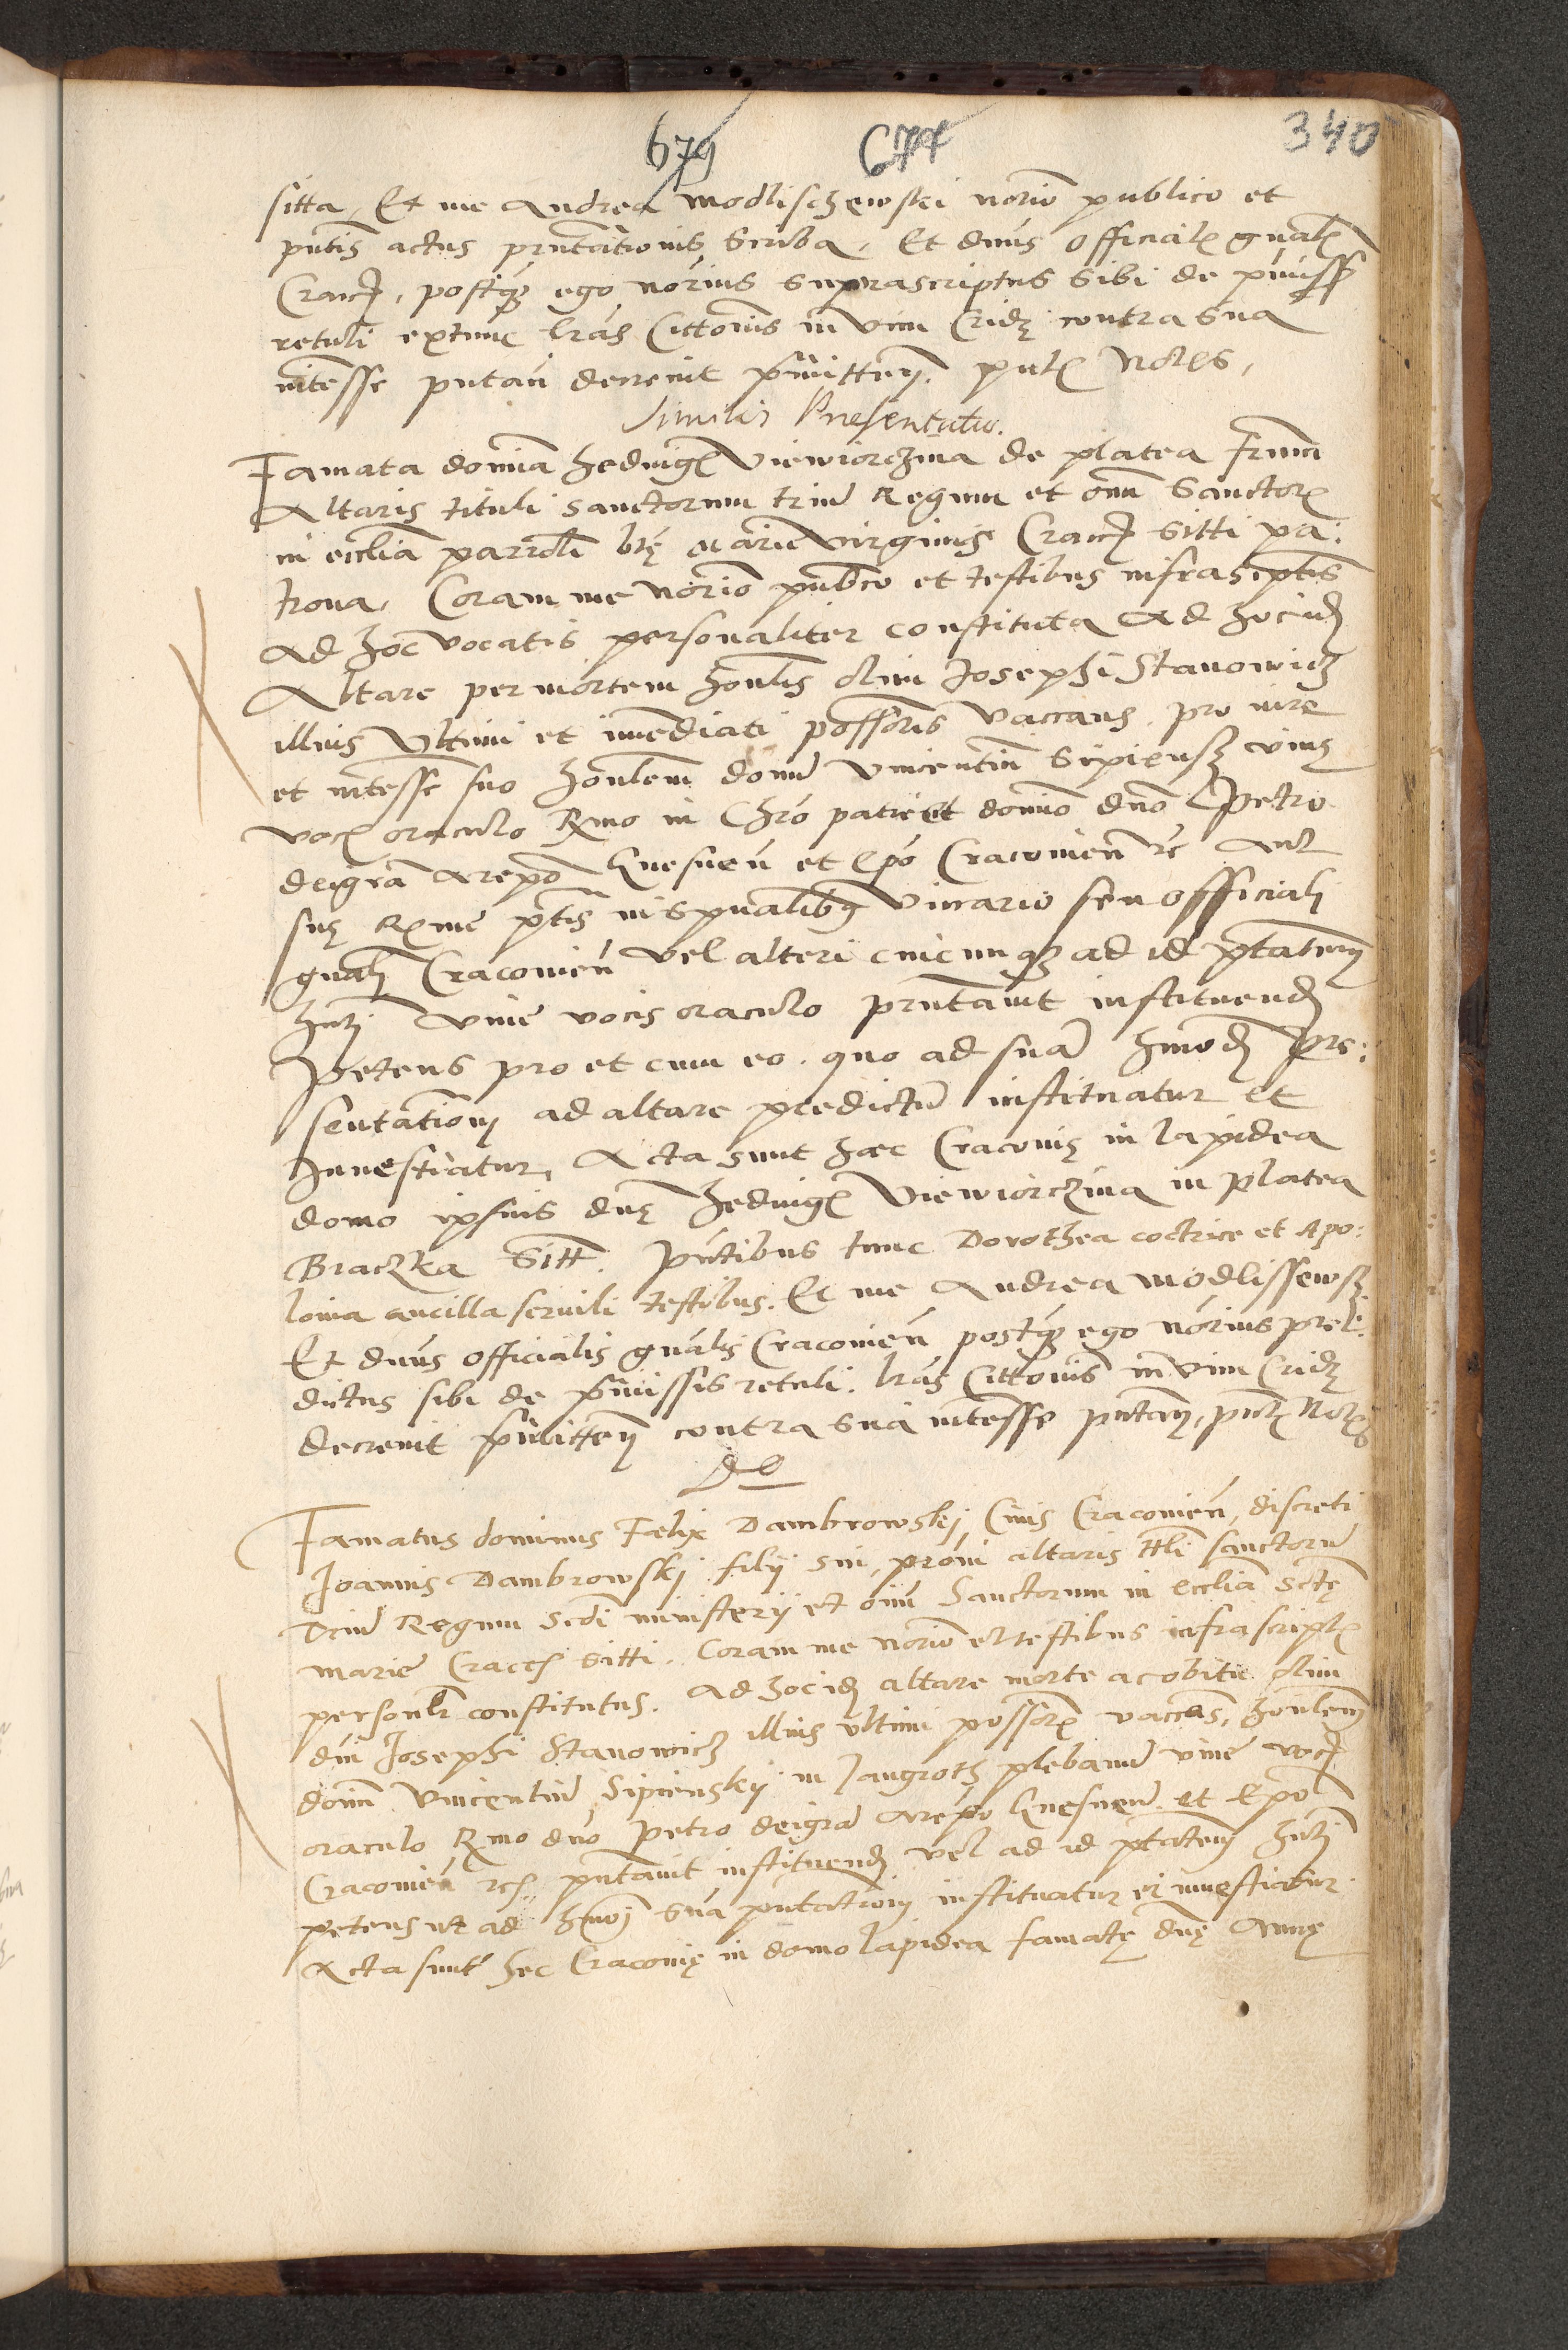 679 674 340
sitta, Et me Andrea Modlischewski norio publico et
pntis actus pntationis scriba, Et dnus officialis gnalis
Cracs, postqz ego norius suprascriptus sibi de pmiss
retuli extunc lras Cittonis in vim Cridę contra sua
intesse putan decrevit pmitten. pntes Notes,
Similis Presentatio.
Famata domina Hedvigis Viewiorczina de platea
Altaris tituli sanctorum trium Regum et oim Sanctorum
in ecclia parroli btę Marie virginis Cracs sitti pa:
trona, Coram me norio publico et testibus infrascptis
ad hoc vocatis personaliter constituta Ad hoc idem
Altare per mortem honlis olim Josephi Stanowicz
illius ultimi et imediati possoris vaccans, pro iure
et intesse suo honlem domin Vincentiu Sipiensz vivę
vocis oraculo Rmo in Chro patri et domino dno Petro
dei gra arepo Gnesnen et Epo Cracovien rc aut
suę Rme ptis in spualibus vicario seu officiali
gnali Cracovien vel alteri cuicumqz ad id ptatem
hnti vive vocis oraculo pntavit instituend
Petens pro et cum eo. quo ad suam hmodi Pre:
sentationem ad altare predictu instituatur et
Investiatur, Acta sunt haec Cracovię in lapidea
domo ipsius dnę Hedvigis Viewiorczina in platea
Braczka sitt. Pntibus tunc Dorothea coctrice et Apo:
lonia ancilla servili testibus. Et me Andrea Modlissewsz
Et dnus officialis gnalis Cracovien postqz ego norius pre:
dictus sibi de pmissis retuli. lras Cittonis in vim Cridę
decrevit pmitten contra sua intesse putan, pntes Notes

Famatus dominus Faelix Dambrowskij Civis Cracovien, discreti
Joannis Dambrowskj filij sui, proni altaris ttli sanctoru
Triu Regum scdi ministerij et oim Sanctorum in ecclia Sctę
Marie Cracs sitti. Coram me norio et testibus infrascriptis
personlr constitutus. Ad hoc idem altare morte ac obitu olim
dni Josephi Stanowicz illius ultimi possoris vaccans, honlem
domin Vincentiu Sipienskij in Jangroth plebanu vive vocis
oraculo Rmo dno Petro dei gra arepo Gnesnen. et Epo
Cracovien rc, pntavit instituend vel ad id ptatem hnti
petens ut ad hmoi sua pntationem instituatur et investiatur.
Acta sunt hec Cracovię in domo lapidea famatę dnę Annę